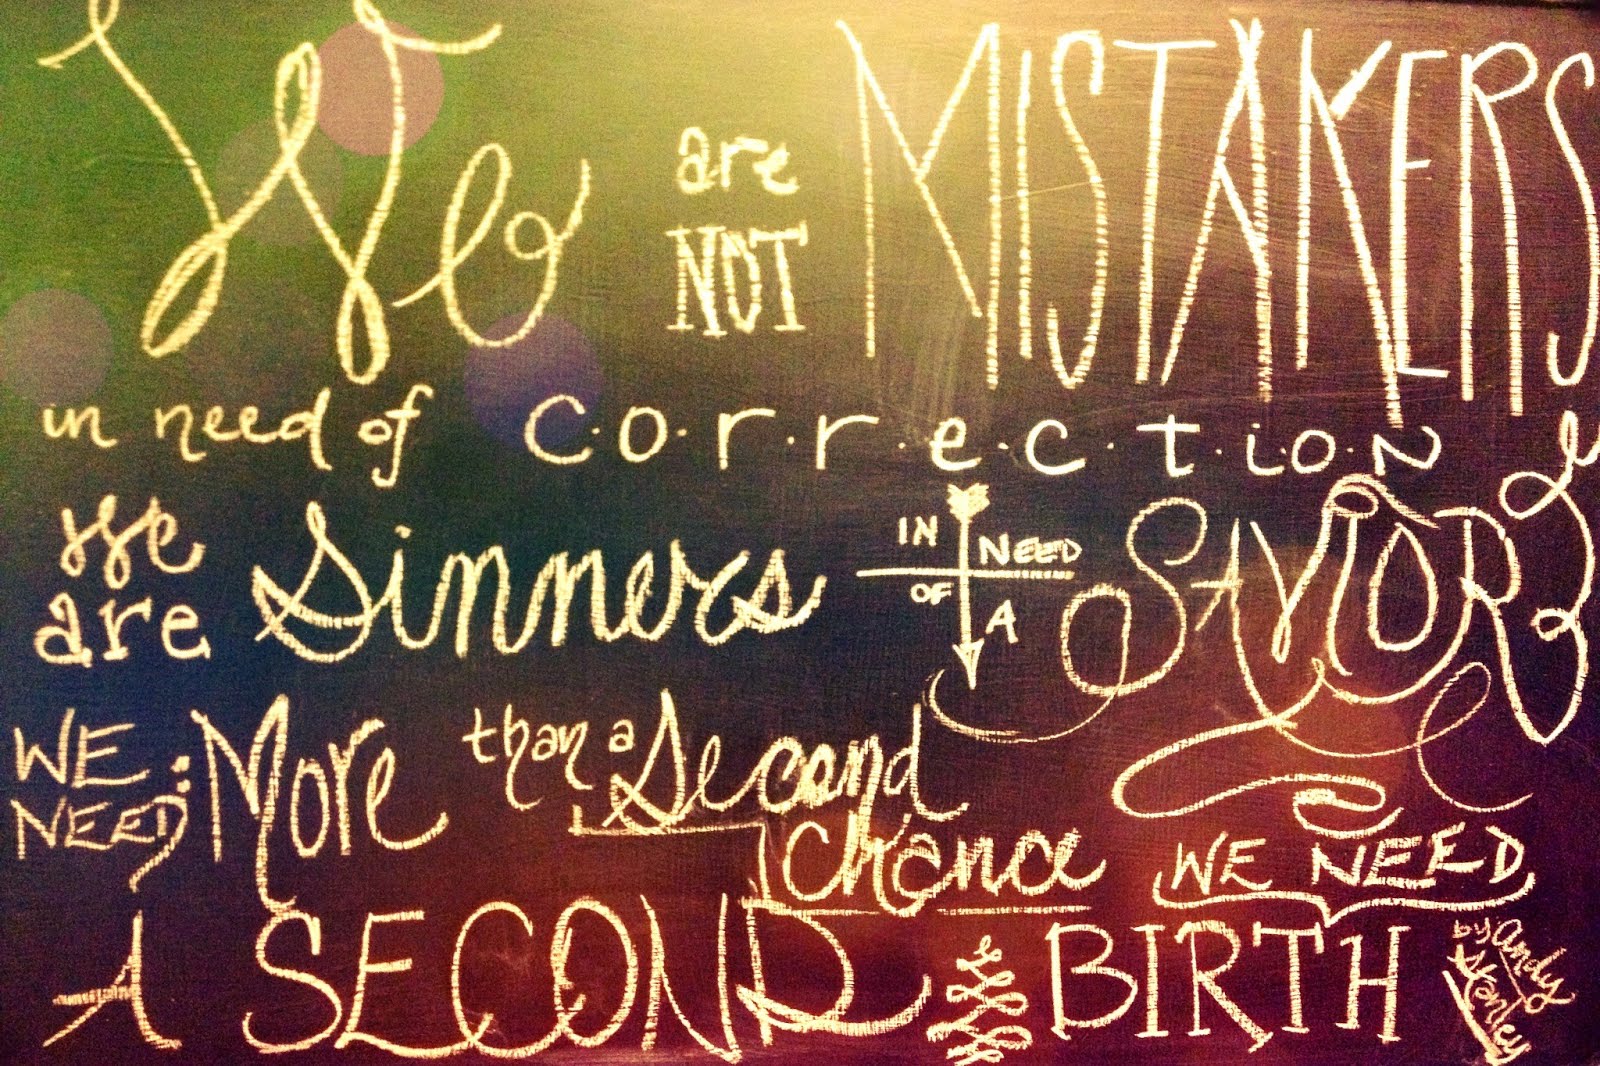 We are NOT MISTAKERS
in need of C·o·r·r·e·c·t·i·o·n
We are Sinners IN NEED OF A SAVIOR
WE NEED: More than a Second Chance WE NEED
A SECOND BIRTH by Andy Stanley